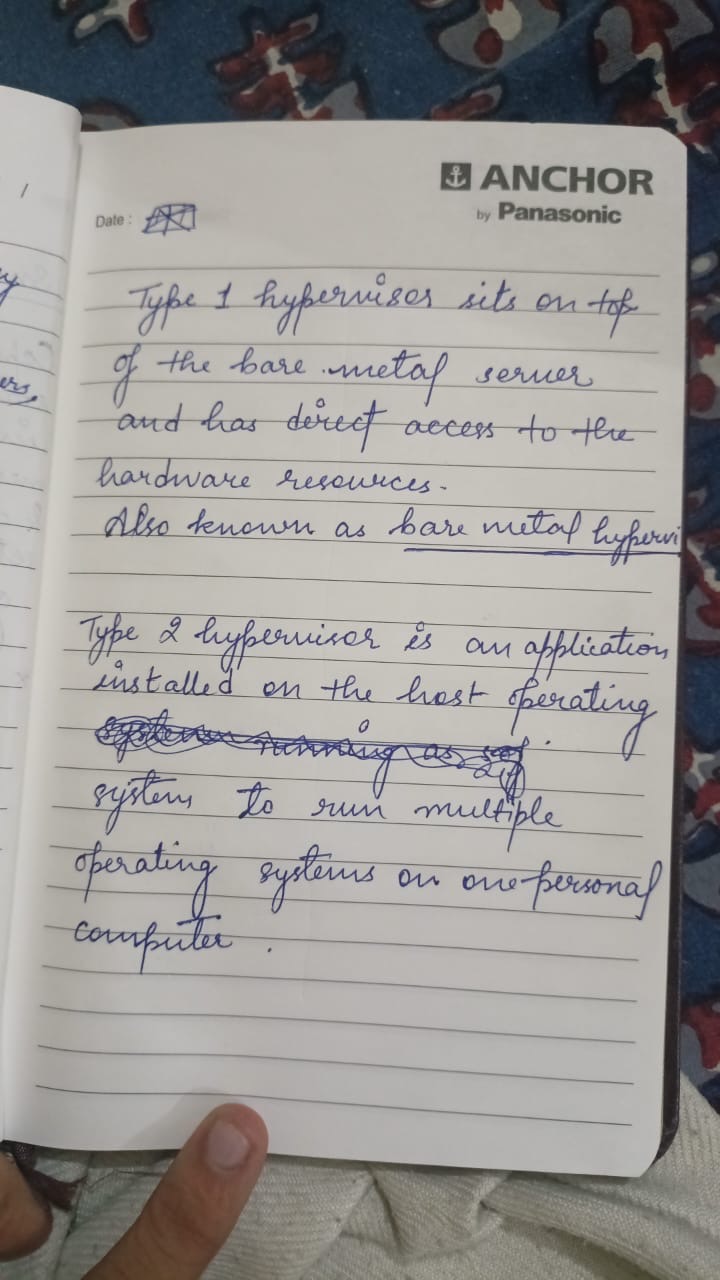 ANCHOR
by Panasonic
Date :
Type 1 hypervisor sits on top
of the bare metal server
and has direct access to the
hardware resources.
Also known as bare metal hypervi
Type 2 hypervisor is an application
installed on the host operating
system to run multiple
operating systems on one personal
computer .